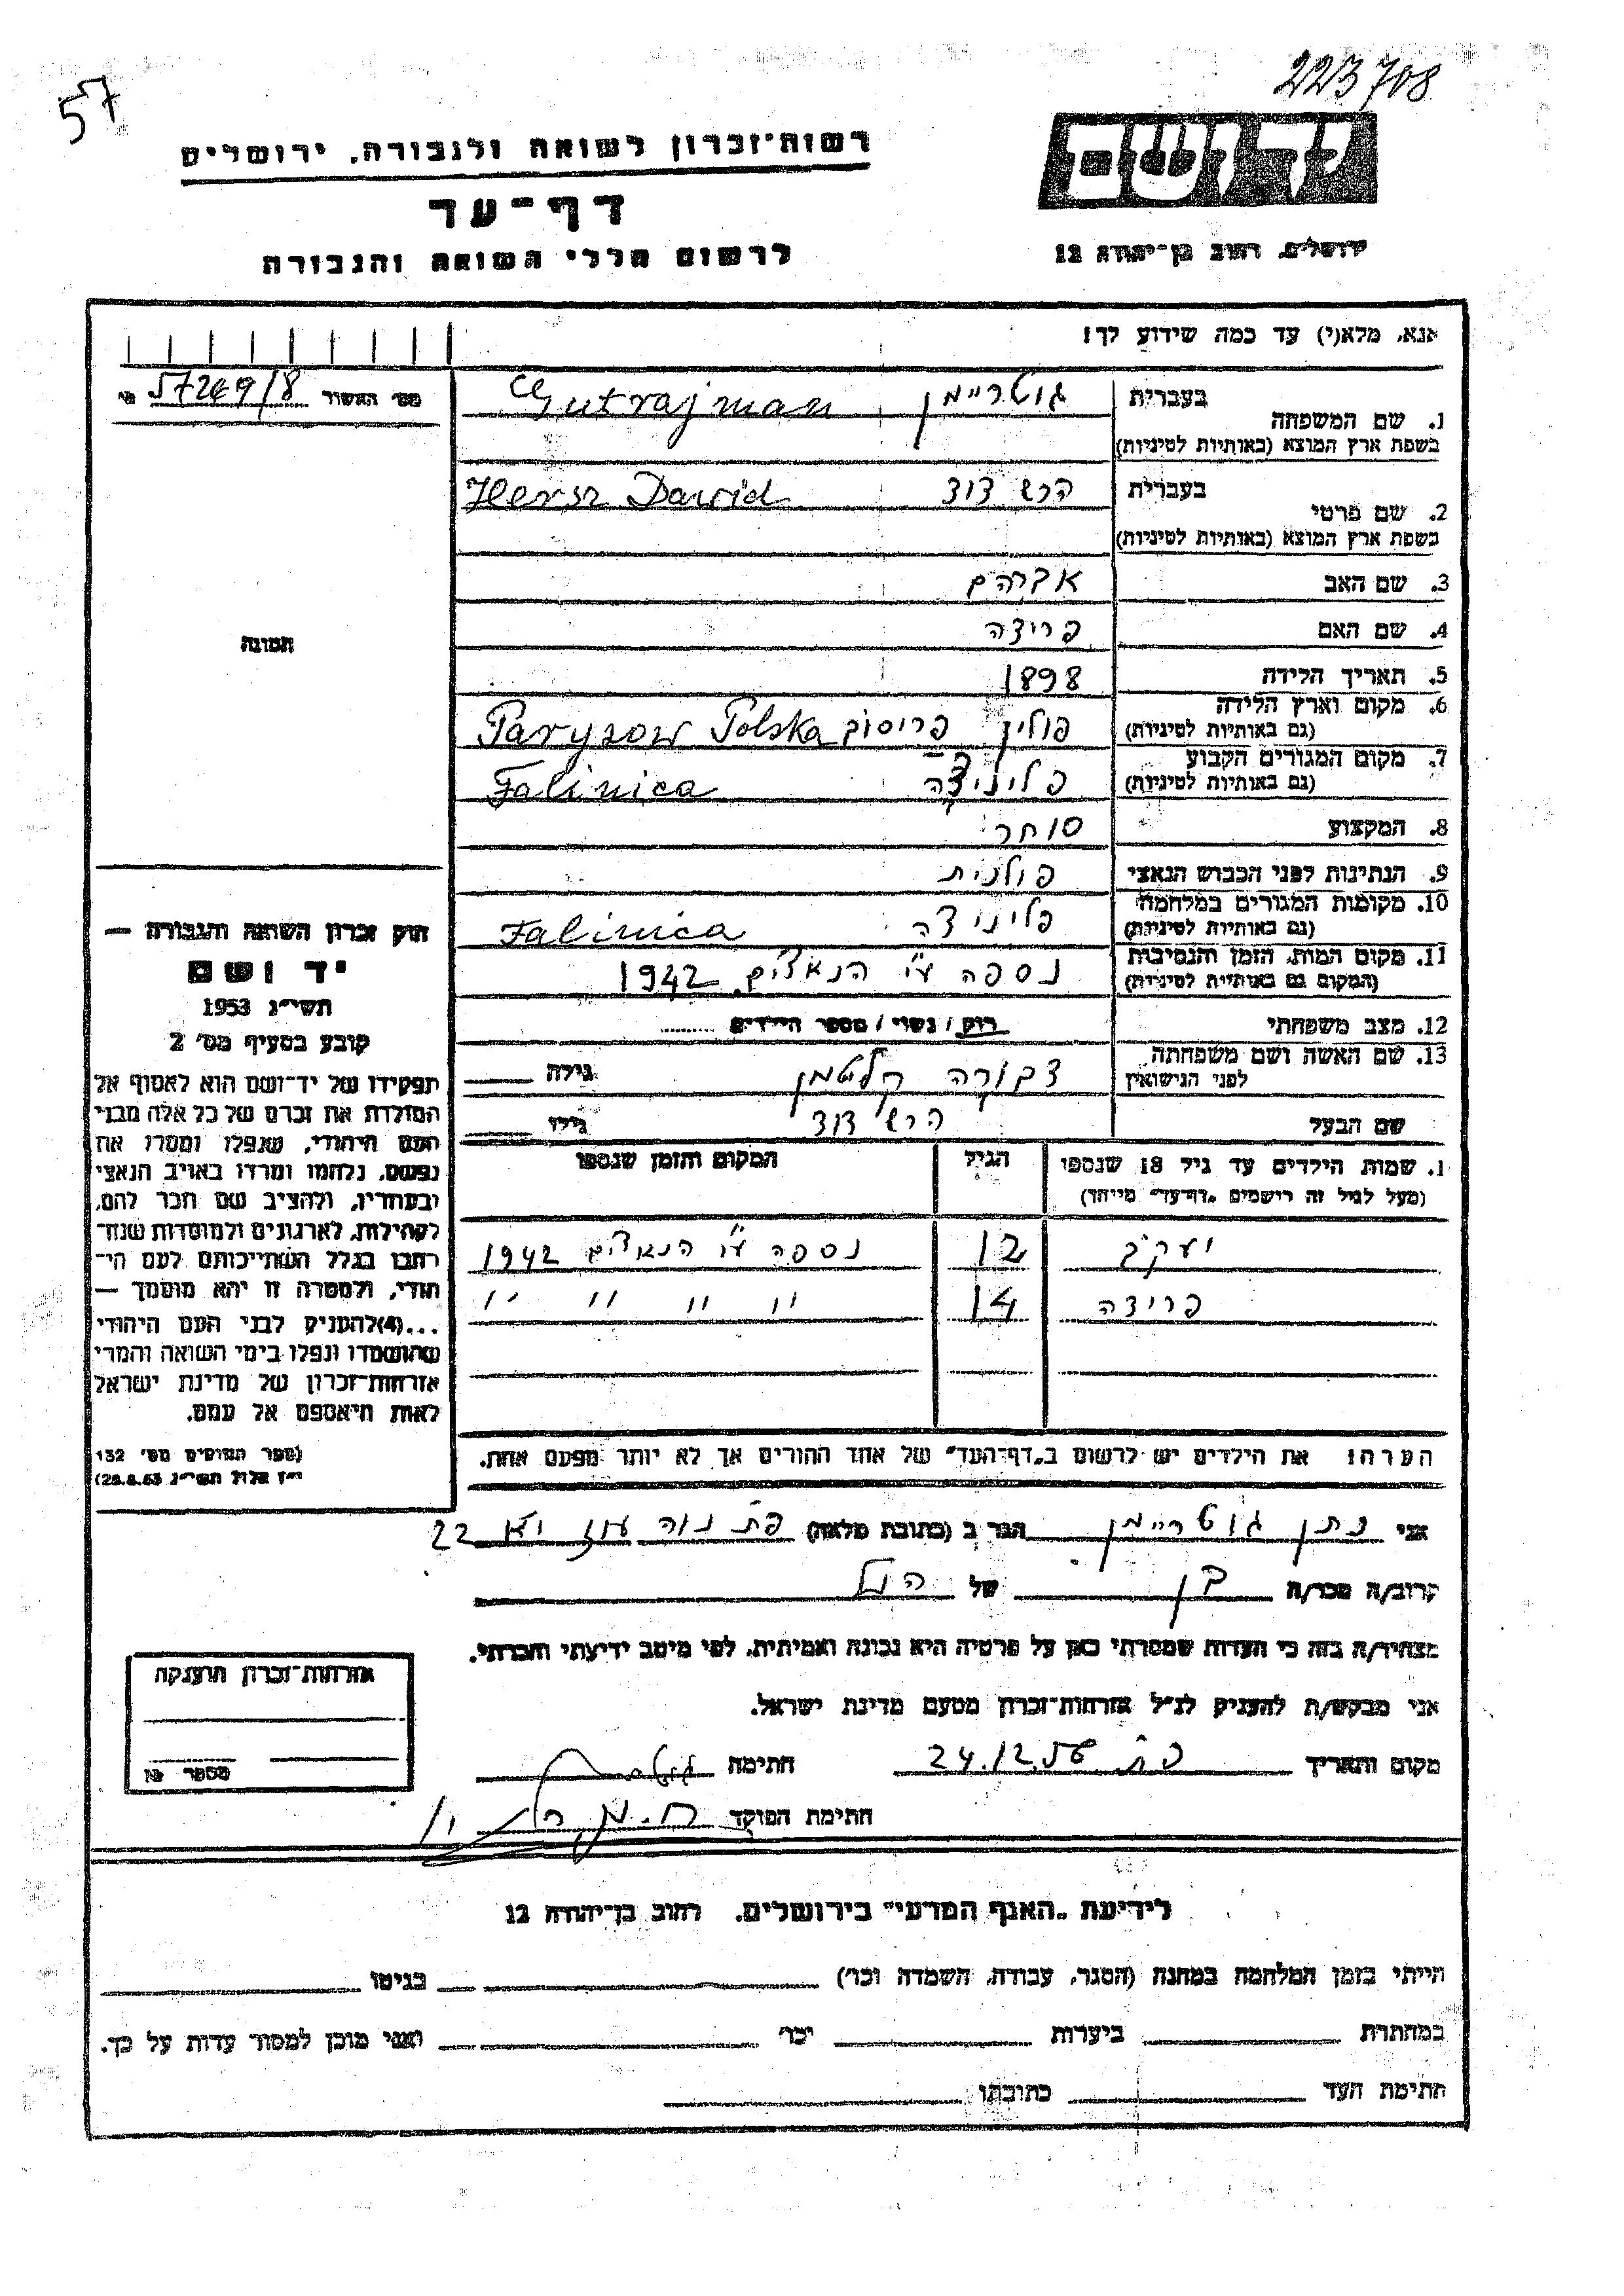 57
223708
רשות־זכרון לשואה ולגבורה, ירושלים
יד ושם
דף־עד
ירושלים, רחוב בן־יהודה 12
לרשום חללי השואה והגבורה
אנא, מלא(י) עד כמה שידוע לך!
מס׳ האשור 57269/8
1. שם המשפחה בעברית גוטריימן Gutrajman
בשפת ארץ המוצא (באותיות לטיניות)
2. שם פרטי בעברית הרש דוד Hersz Dawid
בשפת ארץ המוצא (באותיות לטיניות)
3. שם האב אברהם
4. שם האם פרידה
5. תאריך הלידה 1898
6. מקום וארץ הלידה פולין פריסוב Parysow Polska
(גם באותיות לטיניות)
7. מקום המגורים הקבוע פליניצה Falinica
(גם באותיות לטיניות)
8. המקצוע סוחר
9. הנתינות לפני הכבוש הנאצי פולנית
10. מקומות המגורים במלחמה פליניצה Falinica
(גם באותיות לטיניות)
11. מקום המות, הזמן והנסיבות נספה ע"י הנאצים 1942
(המקום גם באותיות לטיניות)
12. מצב משפחתי רוק / נשוי / מספר הילדים
13. שם האשה ושם משפחתה דבורה גילה
לפני הנישואין
שם הבעל הרש דוד גילו
1. שמות הילדים עד גיל 18 שנספו הגיל המקום והזמן שנספו
(מעל לגיל זה רישמים „דף־עד” מייחד)
יעקב 12 נספה ע"י הנאצים 1942
פרידה 14 " " " "
הערה! את הילדים יש לרשום ב„דף־העד” של אחד ההורים אך לא יותר מפעם אחת.
תמונה
חוק זכרון השואה והגבורה —
יד ושם
תשי״ג 1953
קובע בסעיף מס׳ 2
תפקידו של יד־ושם הוא לאסוף אל
המולדת את זכרם של כל אלה מבני
העם היהודי, שנפלו ומסרו את
נפשם, נלחמו ומרדו באויב הנאצי
ובעוזריו, ולהציב שם וזכר להם,
לקהילות, לארגונים ולמוסדות שנח־
רבו בגלל השתייכותם לעם הי־
הודי, ולמטרה זו יהא מוסמך —
...(4)להעניק לבני העם היהודי
שהושמדו ונפלו בימי השואה והמרי
אזרחות־זכרון של מדינת ישראל
לאות היאספם אל עמם.
(ספר החוקים מס׳ 132
י״ז אלול תשי״ג 28.8.53)
אני נתן גוטריימן הגר ב (כתובת מלאה) פת נוה עוז 22
קרוב/ה מכר/ה בן של הנ"ל
מצהיר/ה בזה כי העדות שמסרתי כאן על פרטיה היא נכונה ואמיתית, לפי מיטב ידיעתי והכרתי.
אני מבקש/ת להעניק לנ״ל אזרחות־זכרון מטעם מדינת ישראל.
מקום ותאריך פ"ת 24.12.56 חתימה
חתימת הפוקד
אזרחות־זכרון הוענקה
מספר
לידיעת „האגף המדעי” בירושלים, רחוב בן־יהודה 12
הייתי בזמן המלחמה במחנה (הסגר, עבודה, השמדה וכו׳) בגיטו
במחתרת ביערות וכו׳ ואני מוכן למסור עדות על כך.
חתימת העד כתובתו